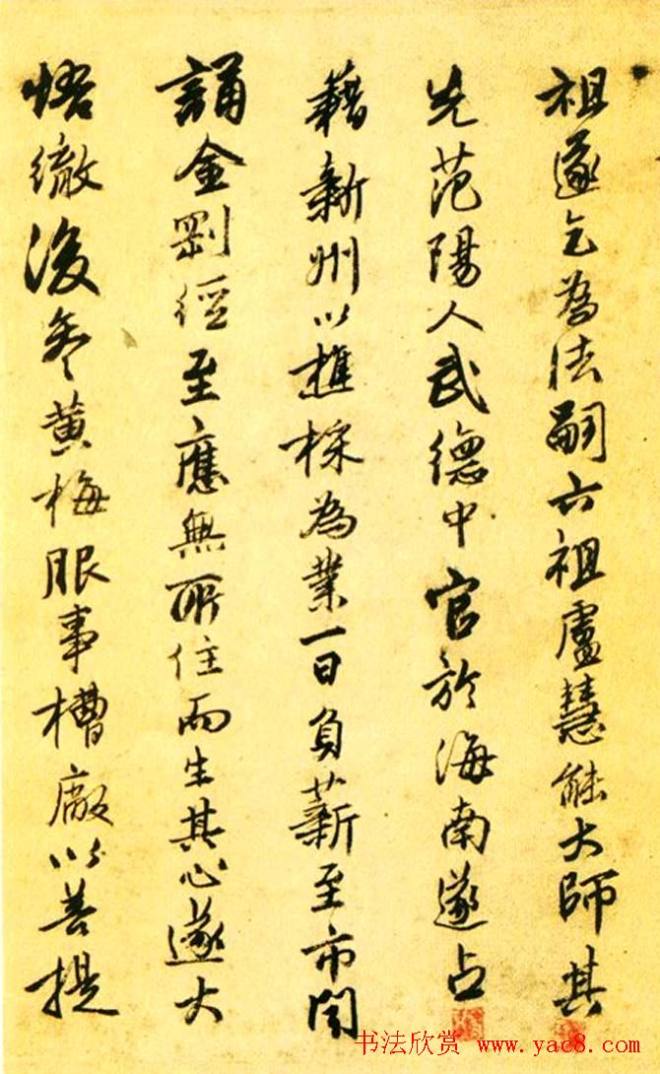 祖遂乞為法嗣六祖盧慧能大師其
先范陽人武德中官於海南遂占
藉新州以樵採為業一日負薪至市聞
誦金剛經至應無所住而生其心遂大
悟徹後參黄梅服事槽廠以菩提
书法欣赏 www.yac8.com